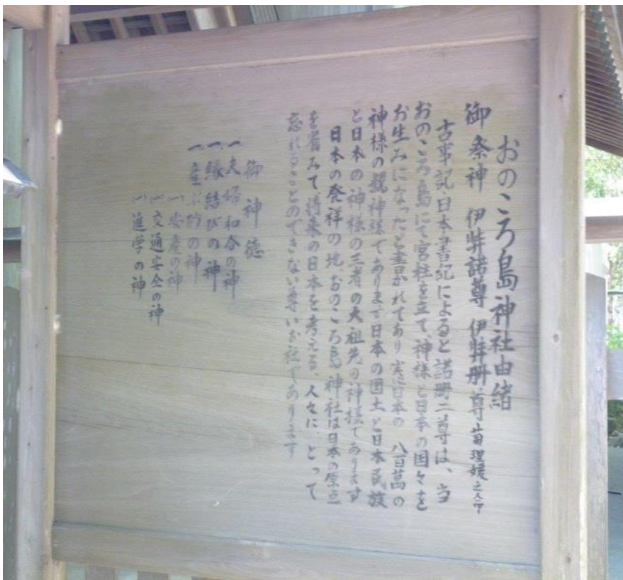 おのころ島神社由緒
御祭神 伊弉諾尊 伊弉冊尊 菊理媛之命
古事記日本書紀によると諾冊二尊は、当
おのころ島にて宮柱を立て、神様と日本の国々を
お生みになったと書かれてあり実に日本の 八百萬の
神様の親神様であります日本の国土と日本民族
と日本の神様の三者の大祖先の神様であります
日本の発祥の地、おのころ島神社は日本の原点
を省みて将来の日本を考える、人々に、とって
忘れることのできない尊いお社であります
御神徳
一、夫婦和合の神
一、縁結びの神
一、産ぶ砂の神
一、安産の神
一、交通安全の神
一、進学の神